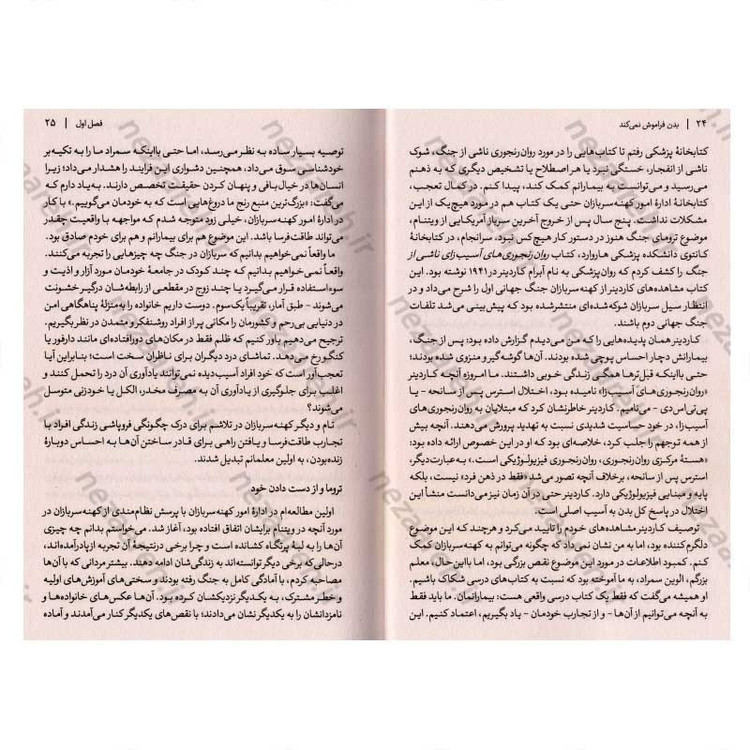 ۲۴ | بدن فراموش نمی‌کند
کتابخانهٔ پزشکی رفتم تا کتاب‌هایی را در مورد روان‌رنجوری ناشی از جنگ، شوک
ناشی از انفجار، خستگی نبرد یا هر اصطلاح یا تشخیص دیگری که به ذهنم
می‌رسید و می‌توانست به بیمارانم کمک کند، پیدا کنم. در کمال تعجب،
کتابخانهٔ ادارهٔ امور کهنه‌سربازان حتی یک کتاب هم در مورد هیچ‌یک از این
مشکلات نداشت. پنج سال پس از خروج آخرین سرباز آمریکایی از ویتنام،
موضوع ترومای جنگ هنوز در دستور کار هیچ‌کس نبود. سرانجام، در کتابخانهٔ
کانتوی دانشکده پزشکی هاروارد، کتاب روان‌رنجوری‌های آسیب‌زای ناشی از
جنگ را کشف کردم که روان‌پزشکی به نام آبرام کاردینر در ۱۹۴۱ نوشته بود. این
کتاب مشاهده‌های کاردینر از کهنه‌سربازان جنگ جهانی اول را شرح می‌داد و در
انتظار سیل سربازان شوکه‌شده‌ای منتشرشده بود که پیش‌بینی می‌شد تلفات
جنگ جهانی دوم باشند.
کاردینر همان پدیده‌هایی را که من می‌دیدم گزارش داده بود: پس از جنگ،
بیمارانش دچار احساس پوچی شده بودند. آن‌ها گوشه‌گیر و منزوی شده بودند؛
حتی بااینکه قبل‌ترها همگی زندگی خوبی داشتند. ما امروزه آنچه کاردینر
«روان‌رنجوری‌های آسیب‌زا» نامیده بود، اختلال استرس پس از سانحه - یا
پی‌تی‌اس‌دی - می‌نامیم. کاردینر خاطرنشان کرد که مبتلایان به روان‌رنجوری‌های
آسیب‌زا، در خود حساسیت شدیدی نسبت به تهدید پرورش می‌دهند. آنچه بیش
از همه توجهم را جلب کرد، خلاصه‌ای بود که او در این خصوص ارائه داده بود:
«هستهٔ مرکزی روان‌رنجوری، روان‌رنجوری فیزیولوژیکی است.» به‌عبارت‌دیگر،
استرس پس از سانحه، برخلاف آنچه تصور می‌شد «فقط در ذهن فرد» نیست، بلکه
پایه و مبنایی فیزیولوژیکی دارد. کاردینر حتی در آن زمان نیز می‌دانست منشأ این
اختلال در پاسخ کل بدن به آسیب اصلی است.
توصیف کاردینر مشاهده‌های خودم را تایید می‌کرد و هرچند که این موضوع
دلگرم‌کننده بود، اما به من نشان نمی‌داد که چگونه می‌توانم به کهنه‌سربازان کمک
کنم. کمبود اطلاعات در مورد این موضوع نقص بزرگی بود، اما بااین‌حال، معلم
بزرگم، الوین سمراد، به ما آموخته بود که نسبت به کتاب‌های درسی شکاک باشیم.
او همیشه می‌گفت که فقط یک کتاب درسی واقعی هست: بیمارانمان. ما باید فقط
به آنچه می‌توانیم از آن‌ها - و از تجارب خودمان - یاد بگیریم، اعتماد کنیم. این
فصل اول | ۲۵
توصیه بسیار ساده به نظر می‌رسد، اما حتی بااینکه سمراد ما را به تکیه بر
خودشناسی سوق می‌داد، همچنین دشواری این فرایند را هشدار می‌داد؛ زیرا
انسان‌ها در خیال‌بافی و پنهان کردن حقیقت تخصص دارند. به‌یاد دارم که
می‌گفت: «بزرگ‌ترین منبع رنج ما دروغ‌هایی است که به خودمان می‌گوییم.» با کار
در ادارهٔ امور کهنه‌سربازان، خیلی زود متوجه شدم که مواجهه با واقعیت چقدر
می‌تواند طاقت‌فرسا باشد. این موضوع هم برای بیمارانم و هم برای خودم صادق بود.
ما واقعاً نمی‌خواهیم بدانیم که سربازان در جنگ چه چیزهایی را تجربه می‌کنند.
واقعاً نمی‌خواهیم بدانیم که چند کودک در جامعهٔ خودمان مورد آزار و اذیت و
سوءاستفاده قرار می‌گیرد یا چند زوج در مقطعی از رابطه‌شان درگیر خشونت
می‌شوند - طبق آمار، تقریباً یک‌سوم. دوست داریم خانواده را به‌منزلهٔ پناهگاهی امن
در دنیایی بی‌رحم و کشورمان را مکانی پر از افراد روشنفکر و متمدن در نظر بگیریم.
ترجیح می‌دهیم باور کنیم که ظلم فقط در مکان‌های دورافتاده‌ای مانند دارفور یا
کنگو رخ می‌دهد. تماشای درد دیگران برای ناظران سخت است؛ بنابراین آیا
تعجب‌آور است که خود افراد آسیب‌دیده نمی‌توانند یادآوری آن درد را تحمل کنند و
اغلب برای جلوگیری از یادآوری آن به مصرف مخدر، الکل یا خودزنی متوسل
می‌شوند؟
تام و دیگر کهنه‌سربازان در تلاشم برای درک چگونگی فروپاشی زندگی افراد با
تجارب طاقت‌فرسا و یافتن راهی برای قادر ساختن آن‌ها به احساس دوبارهٔ
زنده‌بودن، به اولین معلمانم تبدیل شدند.
تروما و از دست دادن خود
اولین مطالعه‌ام در ادارهٔ امور کهنه‌سربازان با پرسش نظام‌مندی از کهنه‌سربازان در
مورد آنچه در ویتنام برایشان اتفاق افتاده بود، آغاز شد. می‌خواستم بدانم چه چیزی
آن‌ها را به لبهٔ پرتگاه کشانده است و چرا برخی درنتیجهٔ آن تجربه ازپادرآمده‌اند،
درحالی‌که برخی دیگر توانسته‌اند به زندگی‌شان ادامه دهند. بیشتر مردانی که با آن‌ها
مصاحبه کردم، با آمادگی کامل به جنگ رفته بودند و سختی‌های آموزش‌های اولیه
و خطر مشترک، به یکدیگر نزدیکشان کرده بود. آن‌ها عکس‌های خانواده‌ها و
نامزدانشان را به یکدیگر نشان می‌دادند؛ با نقص‌های یکدیگر کنار می‌آمدند و آماده